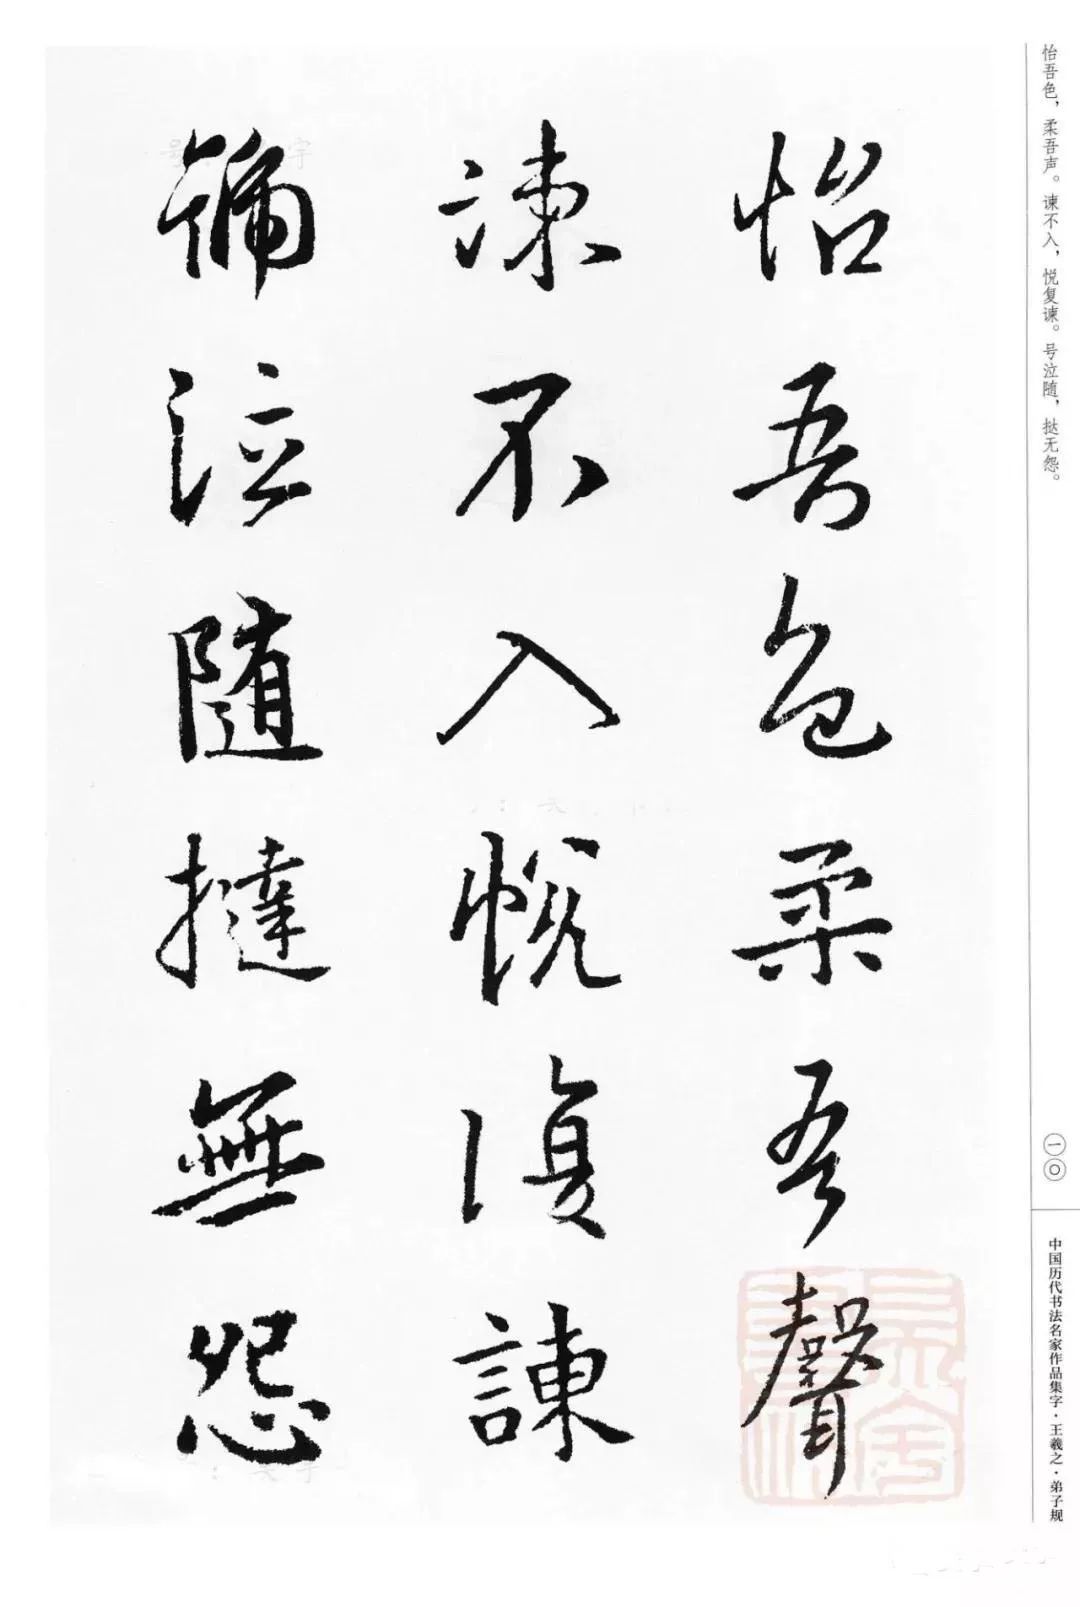 怡吾色，柔吾声。谏不入，悦复谏。号泣随，挞无怨。
怡吾色柔吾聲
諫不入悅復諫
號泣隨撻無怨
一〇
中国历代书法名家作品集字·王羲之·弟子规